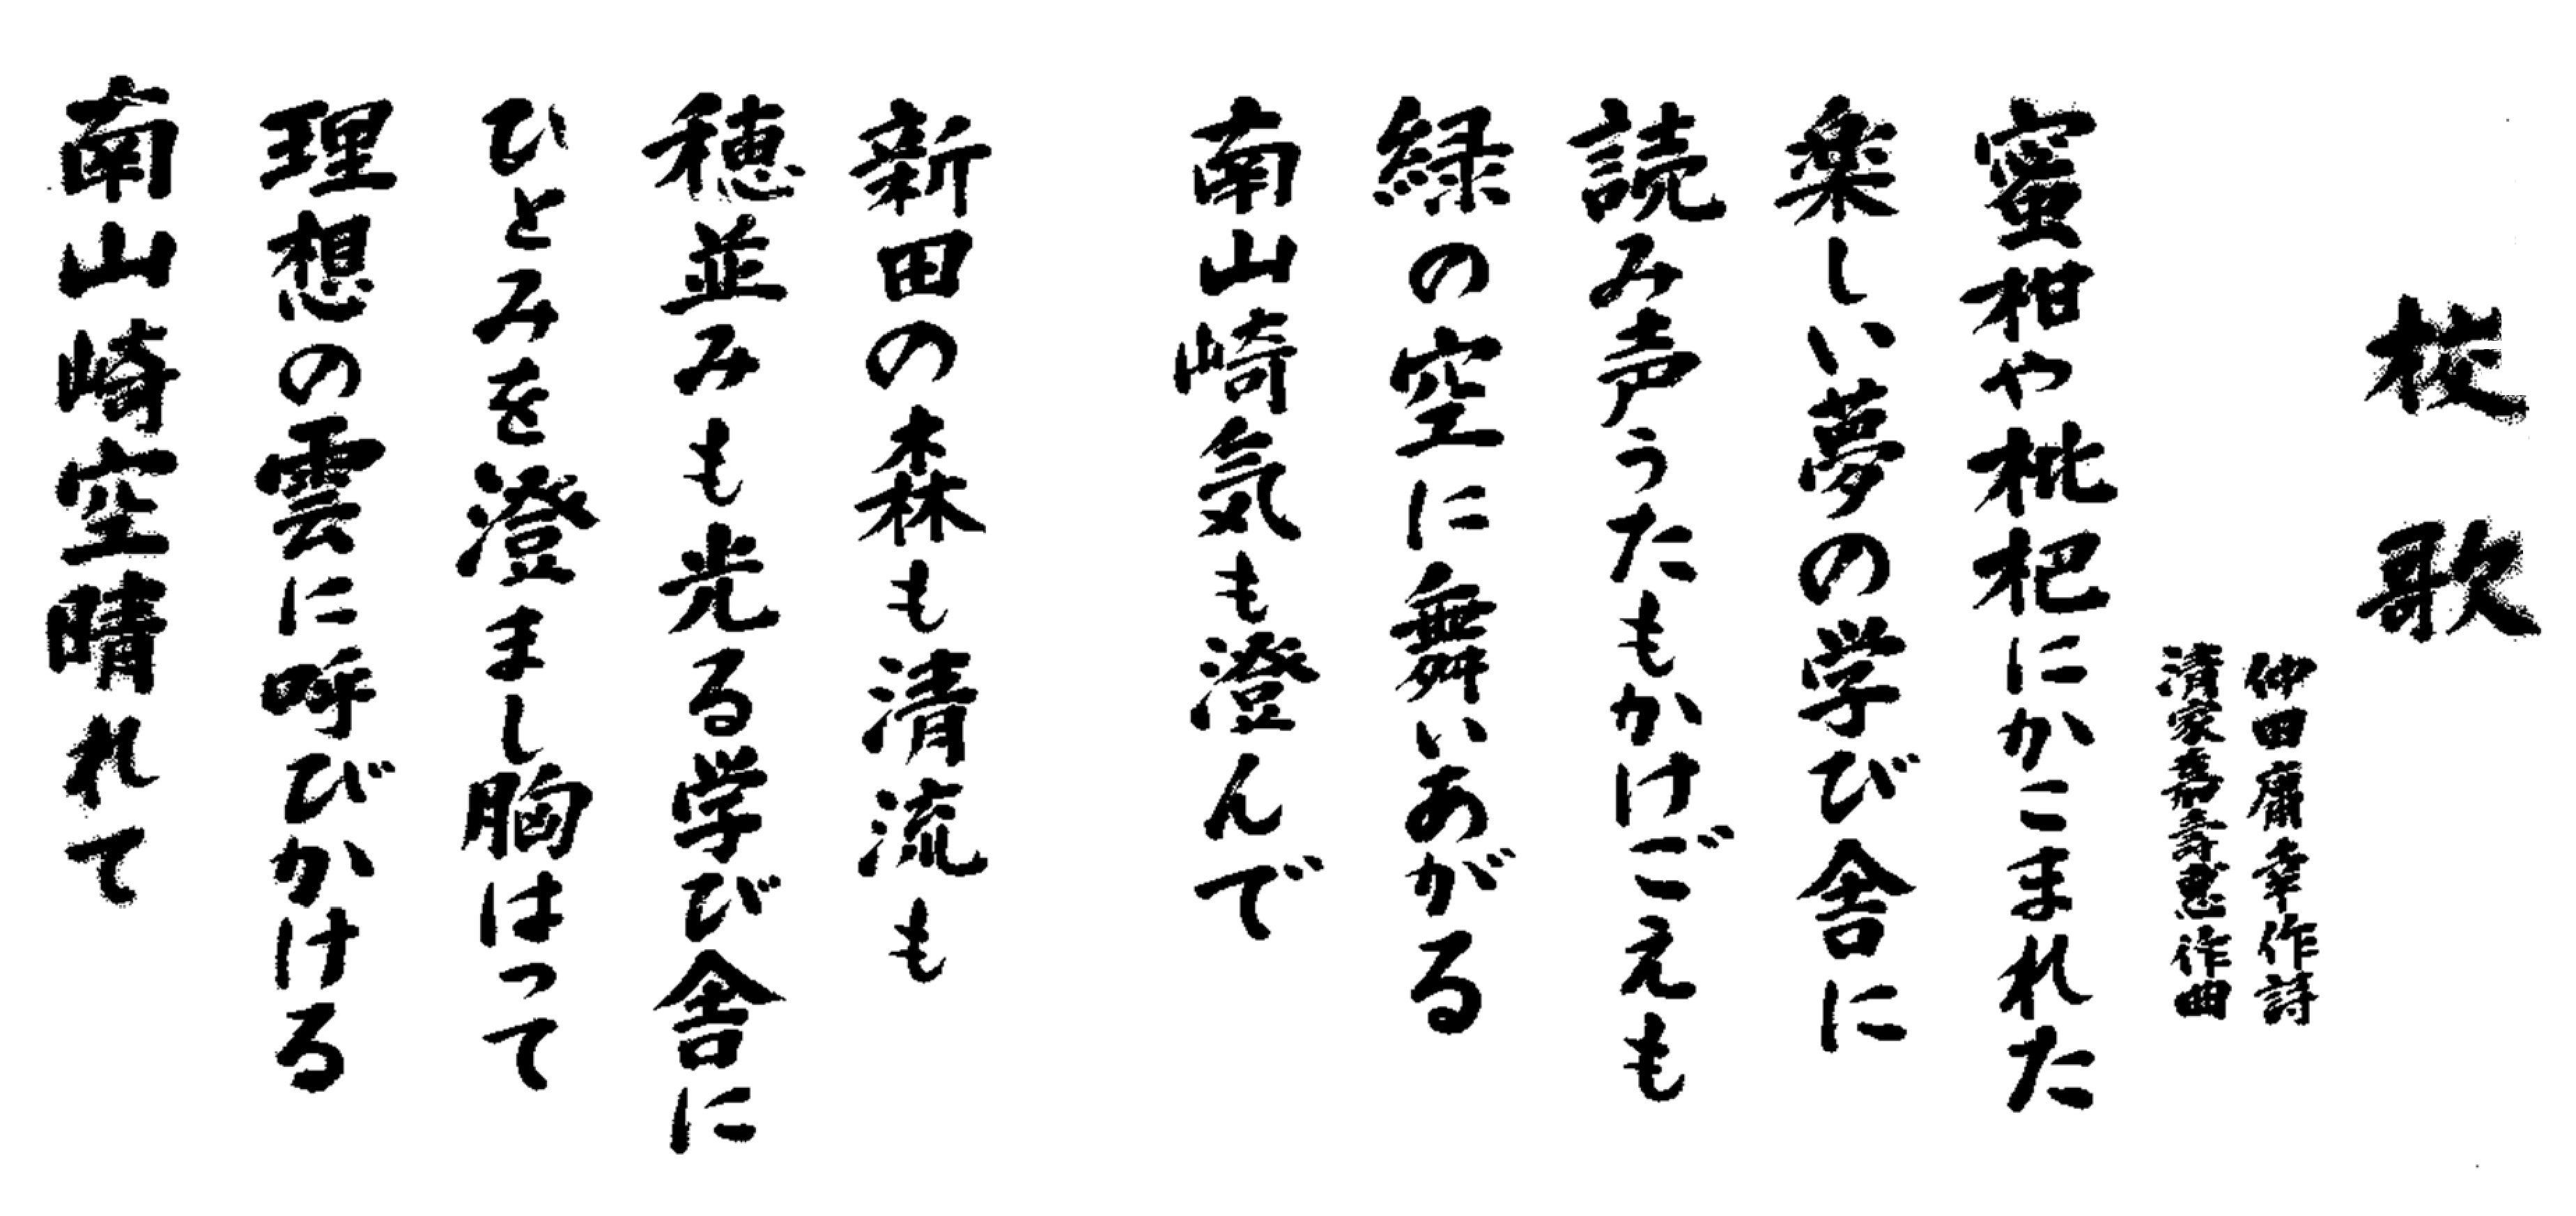 校歌
仲田庸幸作詩
清家嘉寿恵作曲
蜜柑や枇杷にかこまれた
楽しい夢の学び舎に
読み声うたもかけごえも
緑の空に舞いあがる
南山崎気も澄んで
新田の森も清流も
穂並みも光る学び舎に
ひとみを澄まし胸はって
理想の雲に呼びかける
南山崎空晴れて